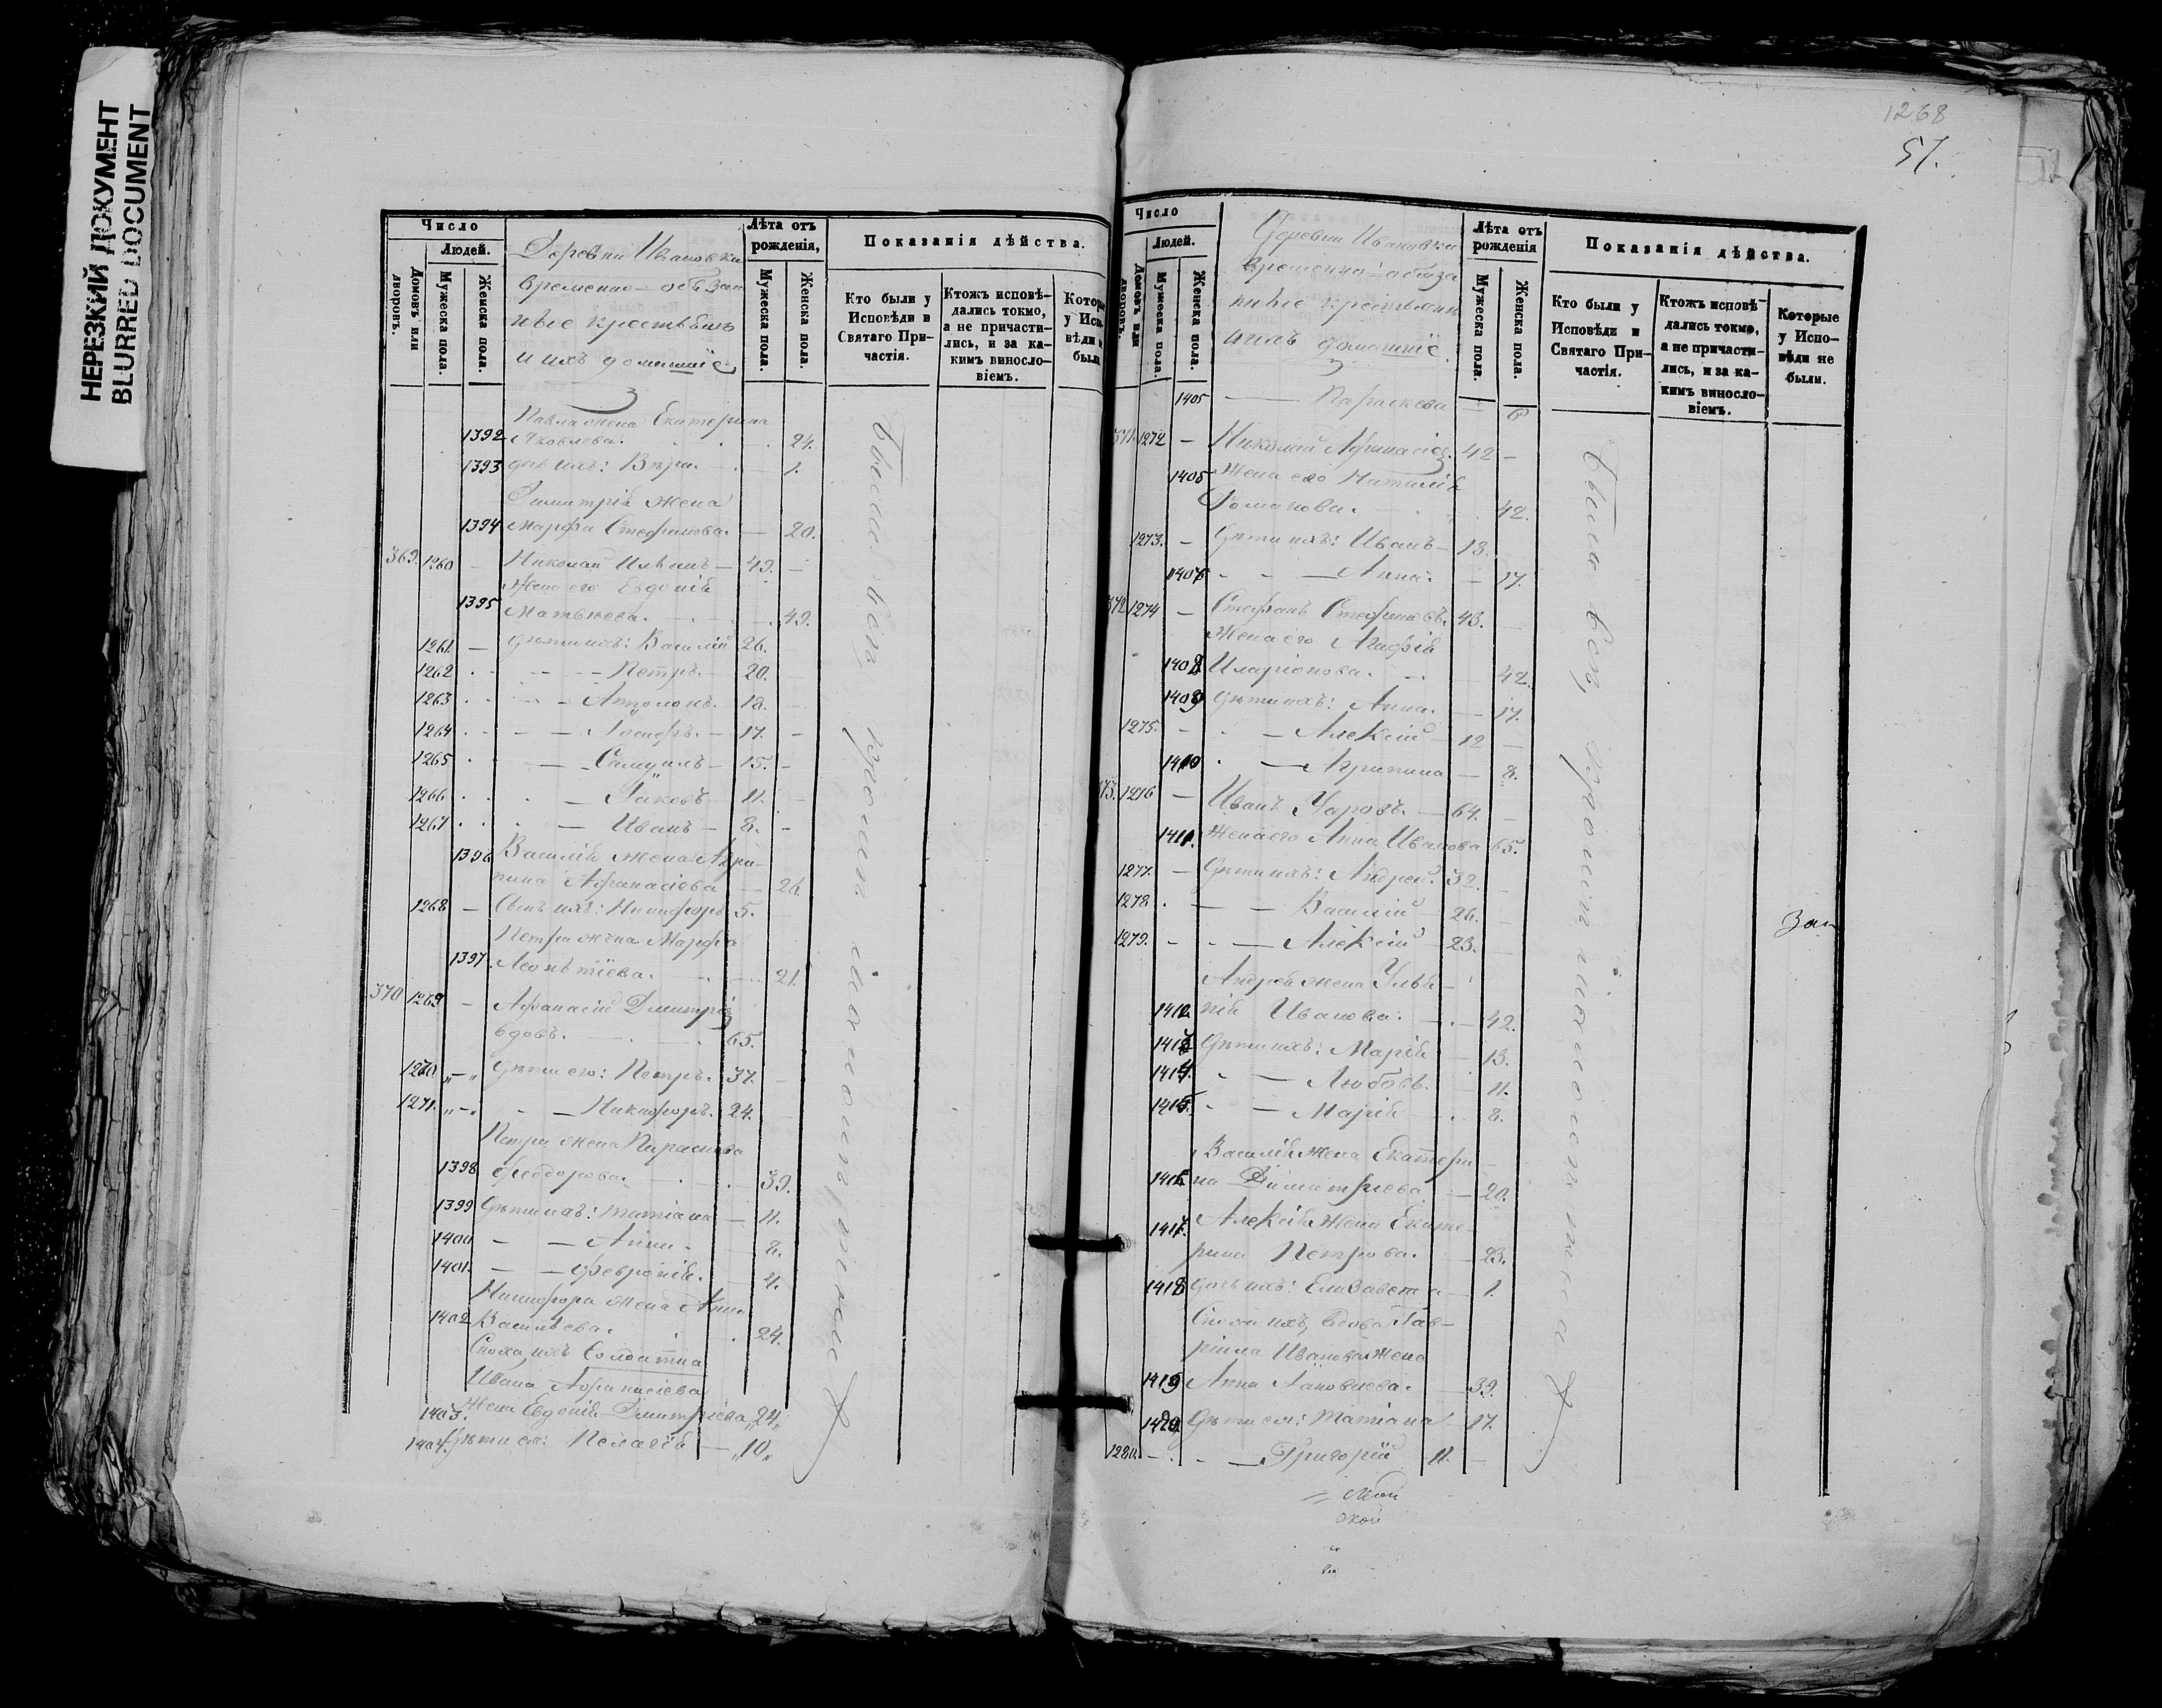 НЕРЕЗКИЙ ДОКУМЕНТ
BLURRED DOCUMENT
Число
Людей.
Домовъ или дворовъ.
Мужеска пола.
Женска пола.
Деревни Ивановки
временно-обязан
ные крестьяне
и ихъ домашніе
Лѣта отъ рожденія,
Мужеска пола.
Женска пола.
Показанія дѣйства.
Кто были у Исповѣди и Святаго Причастія.
Ктожъ исповѣдались токмо, а не причастились, и за какимъ винословіемъ.
Павла жена Екатерина
1392 Яковлева. 24.
1393 дочь ихъ: Вѣра 1.
Димитрія жена
1394 Марфа Стефанова. — 20.
369. 1260 — Николай — 49. —
Жена его Евдокія
1395 Матвѣева. 49.
1261 — дѣти ихъ: Василій 26.
1262 — Петръ. 20.
1263 — 18.
1264 — Іосифъ. — 17. —
1265 — Самуилъ — 15. —
1266 — Іаковъ 11. —
1267 — Иванъ — 8. —
1396 Василія жена Агри-
пина Афанасіева — 26.
1268 — Сынъ ихъ: Никифоръ 5.
Петра жена Марфа
1397 Леонтіева. 21.
370 1269 — Афанасій Дмитріев
вдовъ. 65.
1270 „—„ Дѣти его: Петръ. 37.
1271. „—„ — Никифоръ. 24.
Петра жена Параскева
1398 Феодорова. 39.
1399 Дѣти ихъ: Татіана — 11.
1400 — — Анна. 8.
1401. — — Февронія. 4.
Никифора жена Анна
1402 Васильева. 24.
Сноха ихъ Солдатка
Ивана Афанасіева
1403. Жена Евдокія Дмитріева „24„
1404. Дѣти ея: Пелагія — „10„
были всѣ
1268
57.
Число
Людей.
Домовъ или дворовъ.
Мужеска пола.
Женска пола.
Деревни Ивановки
временно-обяза
нные крестьяне
и ихъ домашніе.
Лѣта отъ рожденія
Мужеска пола.
Женска пола.
Показанія дѣйства.
Кто были у Исповѣди и Святаго Причастія.
Ктожъ исповѣдались токмо, а не причастились, и за какимъ винословіемъ.
Которые у Исповѣди не были.
1405 — Параскева — 6
371. 1272 — Николай Афанасіев. 42 —
1406 Жена его Наталія
Романова. 42.
1273. — Дѣти ихъ: Иванъ — 13.
1407 — Анна. — 17.
372 1274 — Стефанъ Стефановъ. 43.
Жена его Агафія
1408 Иларіонова. 42.
1409 Дѣти ихъ: Анна. — 17.
1275. — — Алексій 12 —
1410 — Агрипина — 8.
373. 1276 — Иванъ Уаровъ. — 64.
1411. Жена его Анна Иванова 65.
1277. — Дѣти ихъ: Андрей. 32.
1278. — — Василій 26.
1279. — — Алексій — 23.
Андрея жена Улья-
1412 нія Иванова. 42.
1413 Дѣти ихъ: Марія 13.
1414. — Любовь. 11.
1415. — Марія 8.
Василія жена Екатери-
1416 на Димитріева — 20.
1417. Алексія жена Екате-
рина Петрова. 23.
1418 дочь ихъ: Елизавета 1.
Сноха ихъ, вдова Гав-
ріила Иванова жена
1419 Анна Іаковлева. 39.
1420 Дѣти ея: Татіана 17.
1280. — — Григорій 11. —
были всѣ